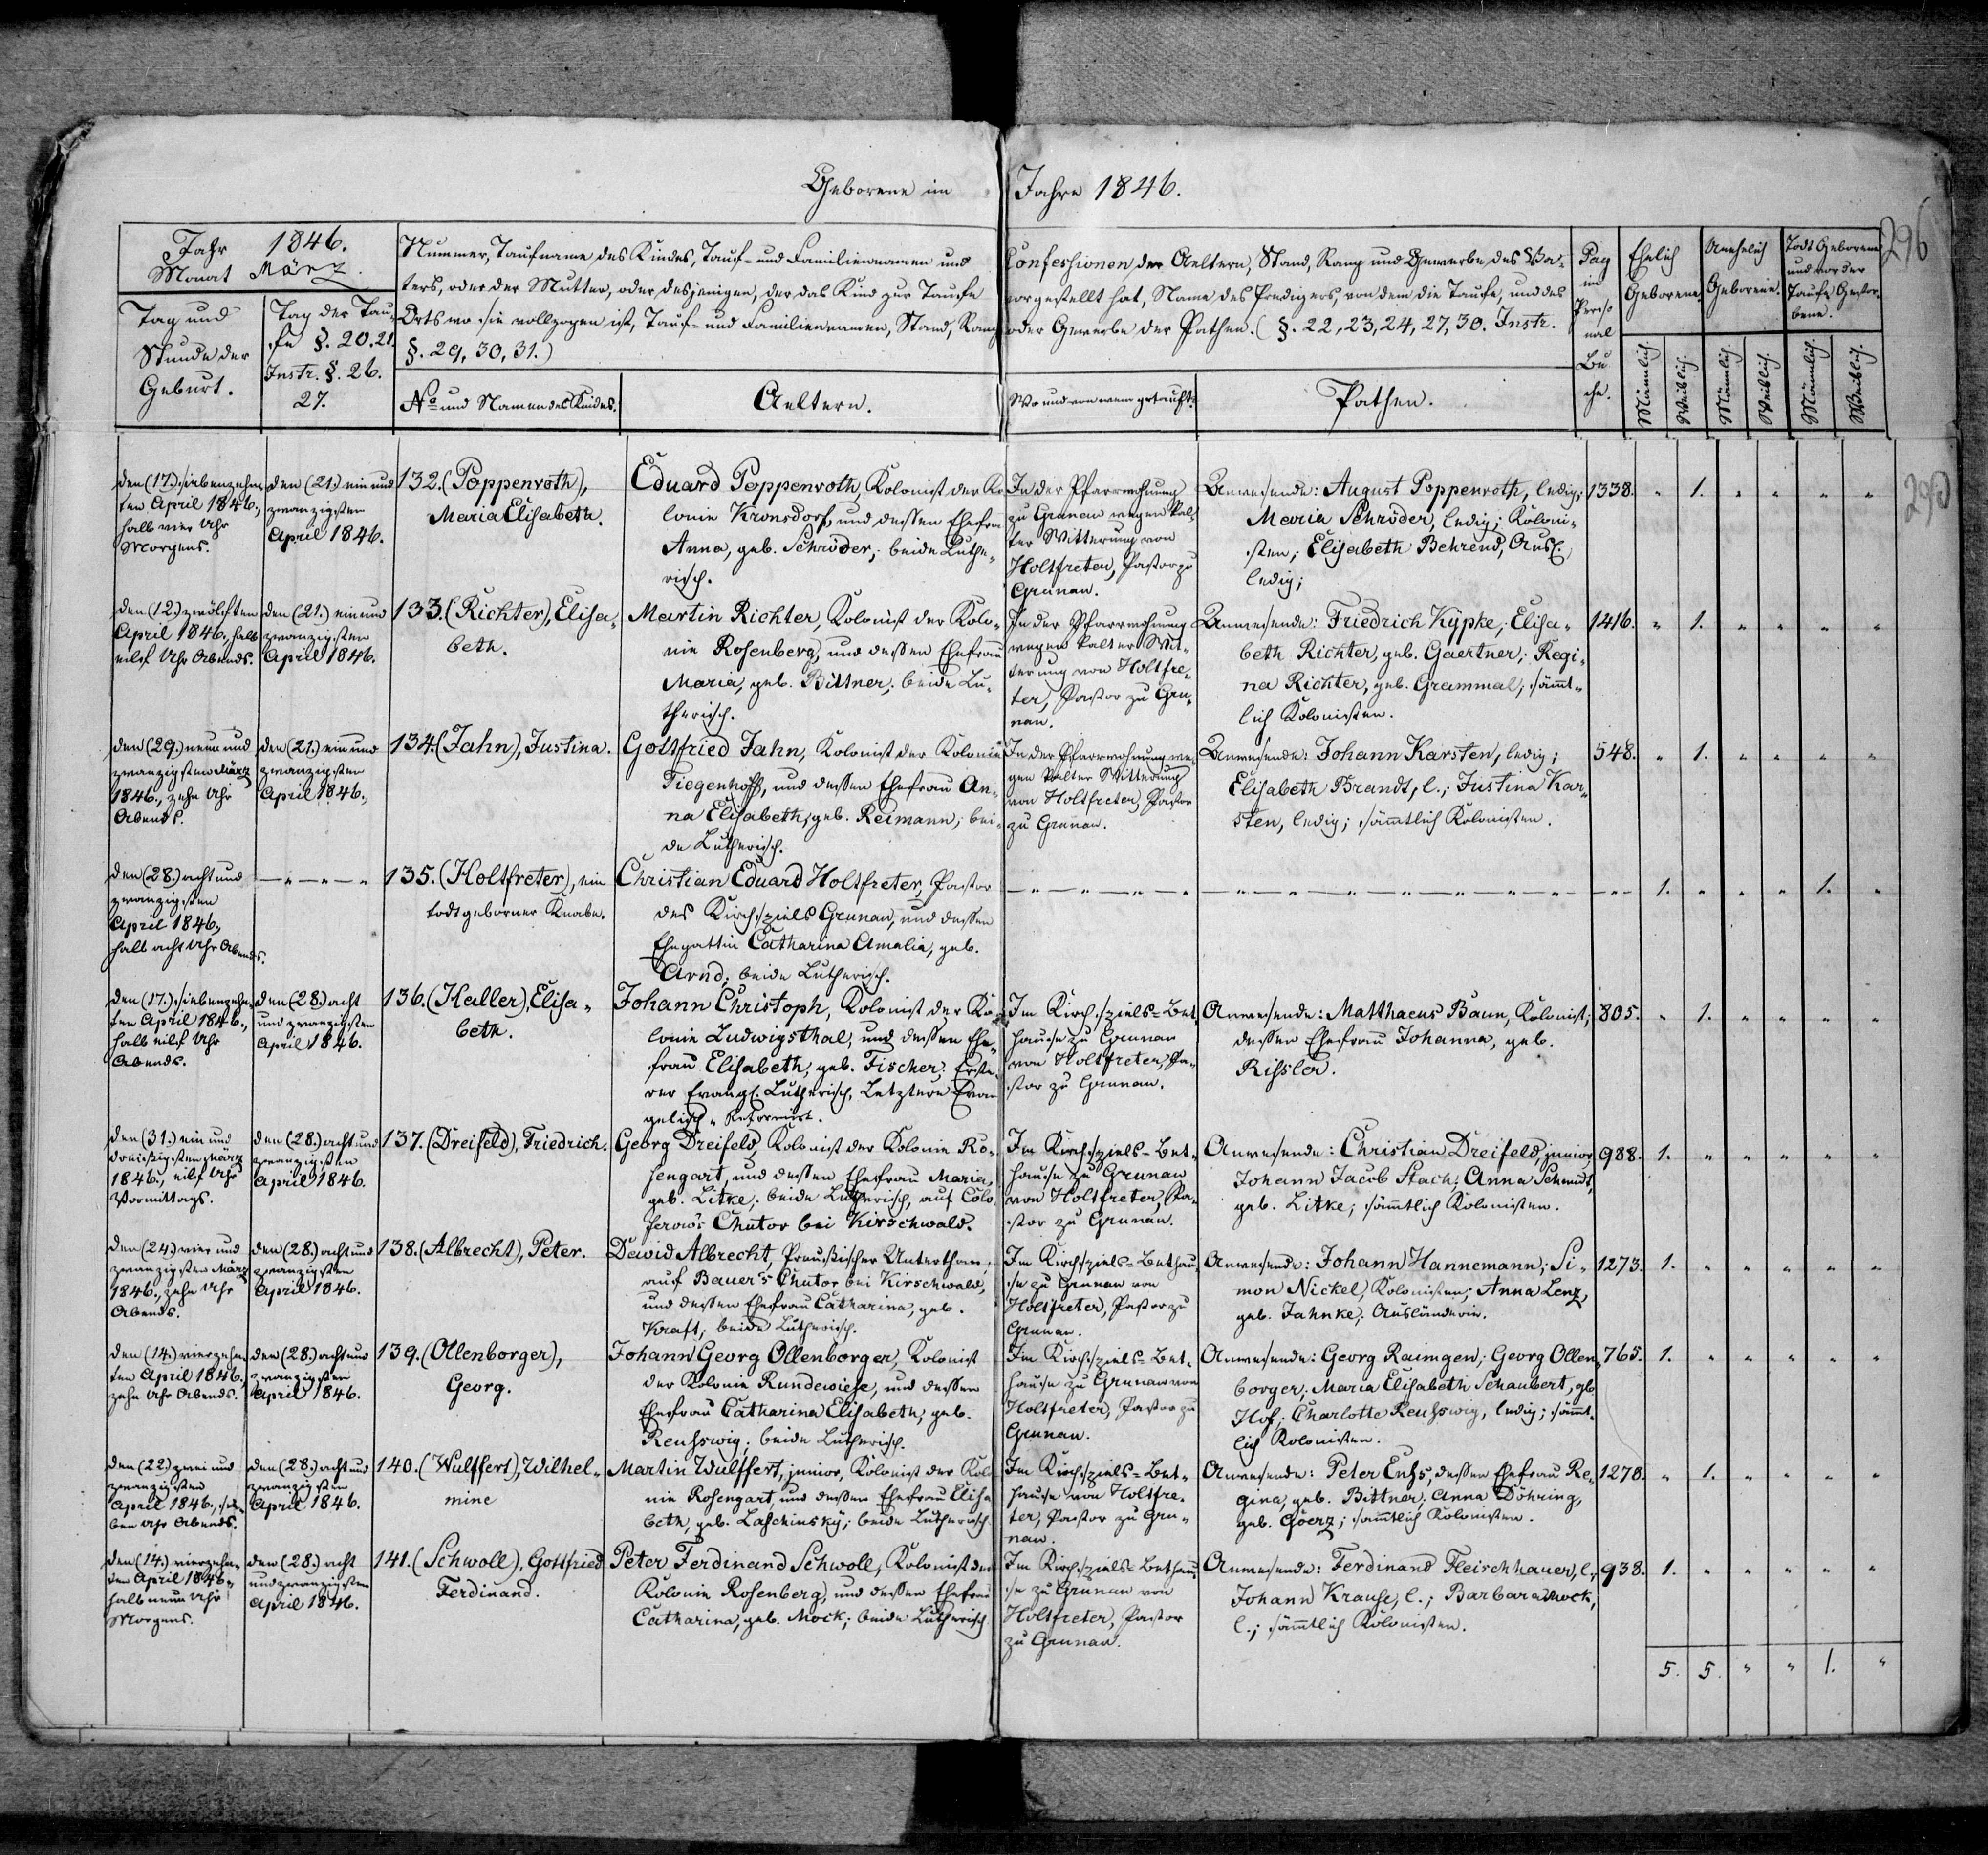 Geborene im Jahre 1846.
296
290
Jahr 1846.
Monat März.
Tag und
Stunde der
Geburt.
Tag der Tau-
fe §. 20. 21.
Instr. §. 26.
27.
Nummer, Taufname des Kindes, Tauf- und Familiennamen und Confessionen der Aeltern, Stand, Rang und Gewerbe des Va-
ters, oder der Mutter, oder desjenigen, der das Kind zur Taufe vorgestellt hat, Name des Predigers, von dem die Taufe, und des
Orts wo sie vollzogen ist, Tauf- und Familiennamen, Stand, Rang oder Gewerbe der Pathen. (§. 22, 23, 24, 27, 30. Instr.
§. 29, 30, 31.)
No und Namen des Kindes.
Aeltern.
Wo und von wem getauft.
Pathen.
Pag
im
Perso
nal
Bu
che.
Ehelich
Geborene.
Unehelich
Geborene.
Todt Geborene
und vor der
Taufe Gestor-
bene.
Männlich.
Weiblich.
Männlich.
Weiblich.
Männlich.
Weiblich.
den (17.) siebenzehn-
ten April 1846.,
halb vier Uhr
Morgens.
den (21.) ein und
zwanzigsten
April 1846.
132. (Poppenroth),
Maria Elisabeth.
Eduard Poppenroth, Kolonist der Ko-
lonie Kronsdorf, und dessen Ehefrau
Anna, geb. Schröder; beide Luthe-
risch.
In der Pfarrwohnung
zu Grunau wegen kal-
ter Witterung von
Holtfreter, Pastor zu
Grunau.
Anwesende: August Poppenroth, ledig;
Maria Schröder, ledig; Koloni-
sten; Elisabeth Behrend, Ausl.
ledig;
1338. " 1. " " " "
den (12.) zwölften
April 1846., halb
eilf Uhr Abends.
den (21.) ein und
zwanzigsten
April 1846.
133. (Richter), Elisa-
beth.
Martin Richter, Kolonist der Kolo-
nie Rosenberg, und dessen Ehefrau
Maria, geb. Bittner; beide Lu-
therisch.
In der Pfarrwohnung
wegen kalter Wit-
terung von Holtfre-
ter, Pastor zu Gru-
nau.
Anwesende: Friedrich Kypke; Elisa-
beth Richter, geb. Gaertner; Regi-
na Richter, geb. Grammal; sämt-
lich Kolonisten.
1416. " 1. " " " "
den (29.) neun und
zwanzigsten März
1846., zehn Uhr
Abends.
den (21.) ein und
zwanzigsten
April 1846.
134. (Jahn), Justina.
Gottfried Jahn, Kolonist der Kolonie
Tiegenhoff, und dessen Ehefrau An-
na Elisabeth, geb. Reimann; bei-
de Lutherisch.
In der Pfarrwohnung we-
gen kalter Witterung
von Holtfreter, Pastor
zu Grunau.
Anwesende: Johann Karsten, ledig;
Elisabeth Brandt, l.; Justina Kar-
sten, ledig; sämtlich Kolonisten.
548. " 1. " " " "
den (28.) acht und
zwanzigsten
April 1846.,
halb acht Uhr Abends.
— " — " — "
135. (Holtfreter), ein
todtgeborner Knabe.
Christian Eduard Holtfreter, Pastor
des Kirchspiels Grunau, und dessen
Ehegattin Catharina Amalia, geb.
Arnd; beide Lutherisch.
— " — " — " — "
— " — " — " — " — " — " — "
1. " " " 1. "
den (17.) siebenzehn-
ten April 1846.,
halb eilf Uhr
Abends.
den (28.) acht
und zwanzigsten
April 1846.
136. (Haller), Elisa-
beth.
Johann Christoph, Kolonist der Ko-
lonie Ludwigsthal, und dessen Ehe-
frau Elisabeth, geb. Fischer; Erste-
rer Evangl. Lutherisch, Letztere Evan
gelisch-Reformirt.
Im Kirchspiels-Bet-
hause zu Grunau
von Holtfreter, Pa-
stor zu Grunau.
Anwesende: Matthaeus Baun, Kolonist,
dessen Ehefrau Johanna, geb.
Rissler.
805. " 1. " " " "
den (31.) ein und
dreißigsten März
1846., eilf Uhr
Vormittags.
den (28.) acht und
zwanzigsten
April 1846.
137. (Dreifeld), Friedrich.
Georg Dreifeld, Kolonist der Kolonie Ro-
sengart, und dessen Ehefrau Maria,
geb. Litke; beide Lutherisch, auf Colo
ferow's Chutor bei Kirschwald.
Im Kirchspiels-Bet-
hause zu Grunau
von Holtfreter, Pa-
stor zu Grunau.
Anwesende: Christian Dreifeld, junior,
Johann Jacob Stach; Anna Schmidt,
geb. Litke; sämtlich Kolonisten.
988. 1. " " " " "
den (24.) vier und
zwanzigsten März
1846., zehn Uhr
Abends.
den (28.) acht und
zwanzigsten
April 1846.
138. (Albrecht), Peter.
Dawid Albrecht, Preußischer Unterthan,
auf Bauer's Chutor bei Kirschwald,
und dessen Ehefrau Catharina, geb.
Kraft; beide Lutherisch.
Im Kirchspiels-Bethau-
se zu Grunau von
Holtfreter, Pastor zu
Grunau.
Anwesende: Johann Hannemann; Si-
mon Nickel, Kolonisten; Anna Lenz,
geb. Jahnke; Ausländerin.
1273. 1. " " " " "
den (14.) vierzehn-
ten April 1846.
zehn Uhr Abends.
den (28.) acht und
zwanzigsten
April 1846.
139. (Ollenborger),
Georg.
Johann Georg Ollenborger, Kolonist
der Kolonie Rundewiese, und dessen
Ehefrau Catharina Elisabeth, geb.
Reusswig; beide Lutherisch.
Im Kirchspiels-Bet-
hause zu Grunau von
Holtfreter, Pastor zu
Grunau.
Anwesende: Georg Raimgen; Georg Ollen
borger; Maria Elisabeth Schaubert, gb.
Hof; Charlotte Reusswig, ledig; sämt-
lich Kolonisten.
765. 1. " " " " "
den (22.) zwei und
zwanzigsten
April 1846., sie-
ben Uhr Abends.
den (28.) acht und
zwanzigsten
April 1846.
140. (Wulffert), Wilhel-
mine
Martin Wulffert, junior, Kolonist der Kolo
nie Rosengart, und dessen Ehefrau Elisa
beth, geb. Laschinsky; beide Lutherisch.
Im Kirchspiels-Bet-
hause von Holtfre-
ter, Pastor zu Gru-
nau.
Anwesende: Peter Enss, dessen Ehefrau Re-
gina, geb. Bittner; Anna Döhring,
geb. Goerz; sämtlich Kolonisten.
1278. " 1. " " " "
den (14.) vierzehn-
ten April 1846.,
halb neun Uhr
Morgens.
den (28.) acht
und zwanzigsten
April 1846.
141. (Schwoll), Gottfried
Ferdinand.
Peter Ferdinand Schwoll, Kolonist der
Kolonie Rosenberg, und dessen Ehefrau
Catharina, geb. Mock; beide Lutherisch.
Im Kirchspiels-Bethau
se zu Grunau von
Holtfreter, Pastor
zu Grunau.
Anwesende: Ferdinand Fleischhauer, l.;
Johann Krause, l.; Barbara Mock,
l.; sämtlich Kolonisten.
938. 1. " " " " "
5. 5. " " 1. "